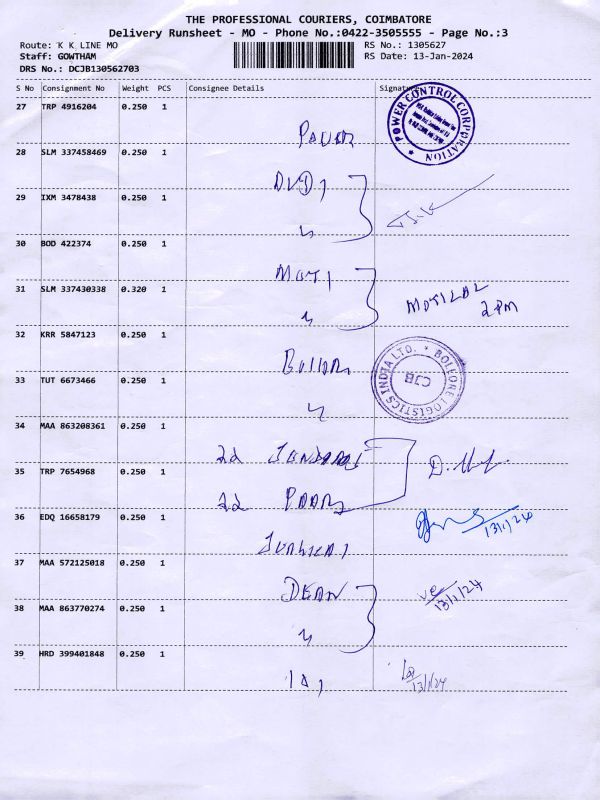 THE PROFESSIONAL COURIERS, COIMBATORE
Delivery Runsheet - MO - Phone No.:0422-3505555 - Page No.:3
Route: K K LINE MO
Staff: GOWTHAM
DRS No.: DCJB130562703
RS No.: 1305627
RS Date: 13-Jan-2024
S No Consignment No Weight PCS Consignee Details Signature
27 TRP 4916204 0.250 1
POWER CONTROL CORPORATION
28 SLM 337458469 0.250 1
29 IXM 3478438 0.250 1
30 BOD 422374 0.250 1
MOTI
31 SLM 337430338 0.320 1
MOTILAL
2 PM
32 KRR 5847123 0.250 1
BOLLORE LOGISTICS INDIA LTD.
CJB
33 TUT 6673466 0.250 1
34 MAA 863208361 0.250 1
35 TRP 7654968 0.250 1
36 EDQ 16658179 0.250 1
13/1/24
37 MAA 572125018 0.250 1
DEAN
13/1/24
38 MAA 863770274 0.250 1
39 HRD 399401848 0.250 1
13/1/24